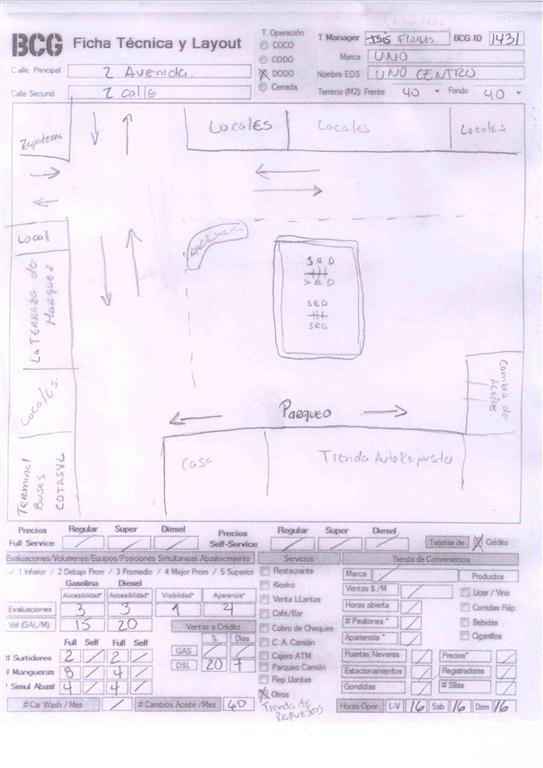 BCG Ficha Técnica y Layout
Calle Principal 2 Avenida.
Calle Secund. 2 calle
T. Operación
COCO
CODO
DODO
Cerrada
T Manager Isis Flores BCG ID 1431
Marca UNO
Nombre EDS UNO CENTRO
Terreno (M2): Frente 40 Fondo 40
Zapateria
Locales Locales Locales
Local
La Terraza do Marquez
Locales.
Terminal Buses COTASYL
S R D
S R D
S R D
S R D
Cambio de Aceite
Parqueo
Casa
Tienda AutoRepusto
Precios Full Service Regular Super Diesel
Precios Self-Service Regular Super Diesel
Tarjetas de Crédito
Evaluaciones/Volumenes/Equipos/Posiciones Simultaneas Abastecimiento
1 Inferior / 2 Debajo Prom / 3 Promedio / 4 Mejor Prom / 5 Superior
Gasolina Diesel
Accesibilidad* Accesibilidad* Visibilidad* Apariencia*
Evaluaciones 3 3 4
Vol (GAL/M) 15 20
Ventas a Crédito
% Dias
GAS
DSL 20 7
Full Self Full Self
# Surtidores 2 2
# Mangueras 8 4
# Simul Abast 4 4
# Car Wash / Mes
# Cambios Aceite /Mes 60
Servicios
Restaurante
Kiosko
Venta LLantas
Café/Bar
Cobro de Cheques
C. A. Camión
Cajero ATM
Parqueo Camión
Rep Llantas
Otros
Tienda de Repuestos
Tienda de Conveniencia
Marca
Ventas $ /M
Horas abierta
# Peatones *
Apariencia *
Productos
Licor / Vino
Comidas Ráp.
Bebidas
Cigarrillos
Puertas Neveras Precios*
Estacionamientos Registradoras
Gondolas # Sillas
Horas Oper. L-V 16 Sab 16 Dom 16